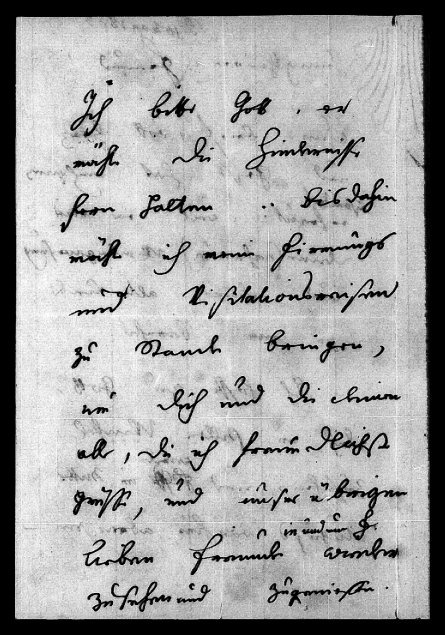 Ich bitte Gott, er
möchte die Hindernisse
fern halten .. bis dahin
möchte ich meine Firmungs
und Visitationsreisen
zu Stande bringen,
um dich und die deinen
alle, die ich freundlichst
grüsse, und unsre übrigen
in und um G.
lieben Freunde wieder
zu sehen und zu geniessen.